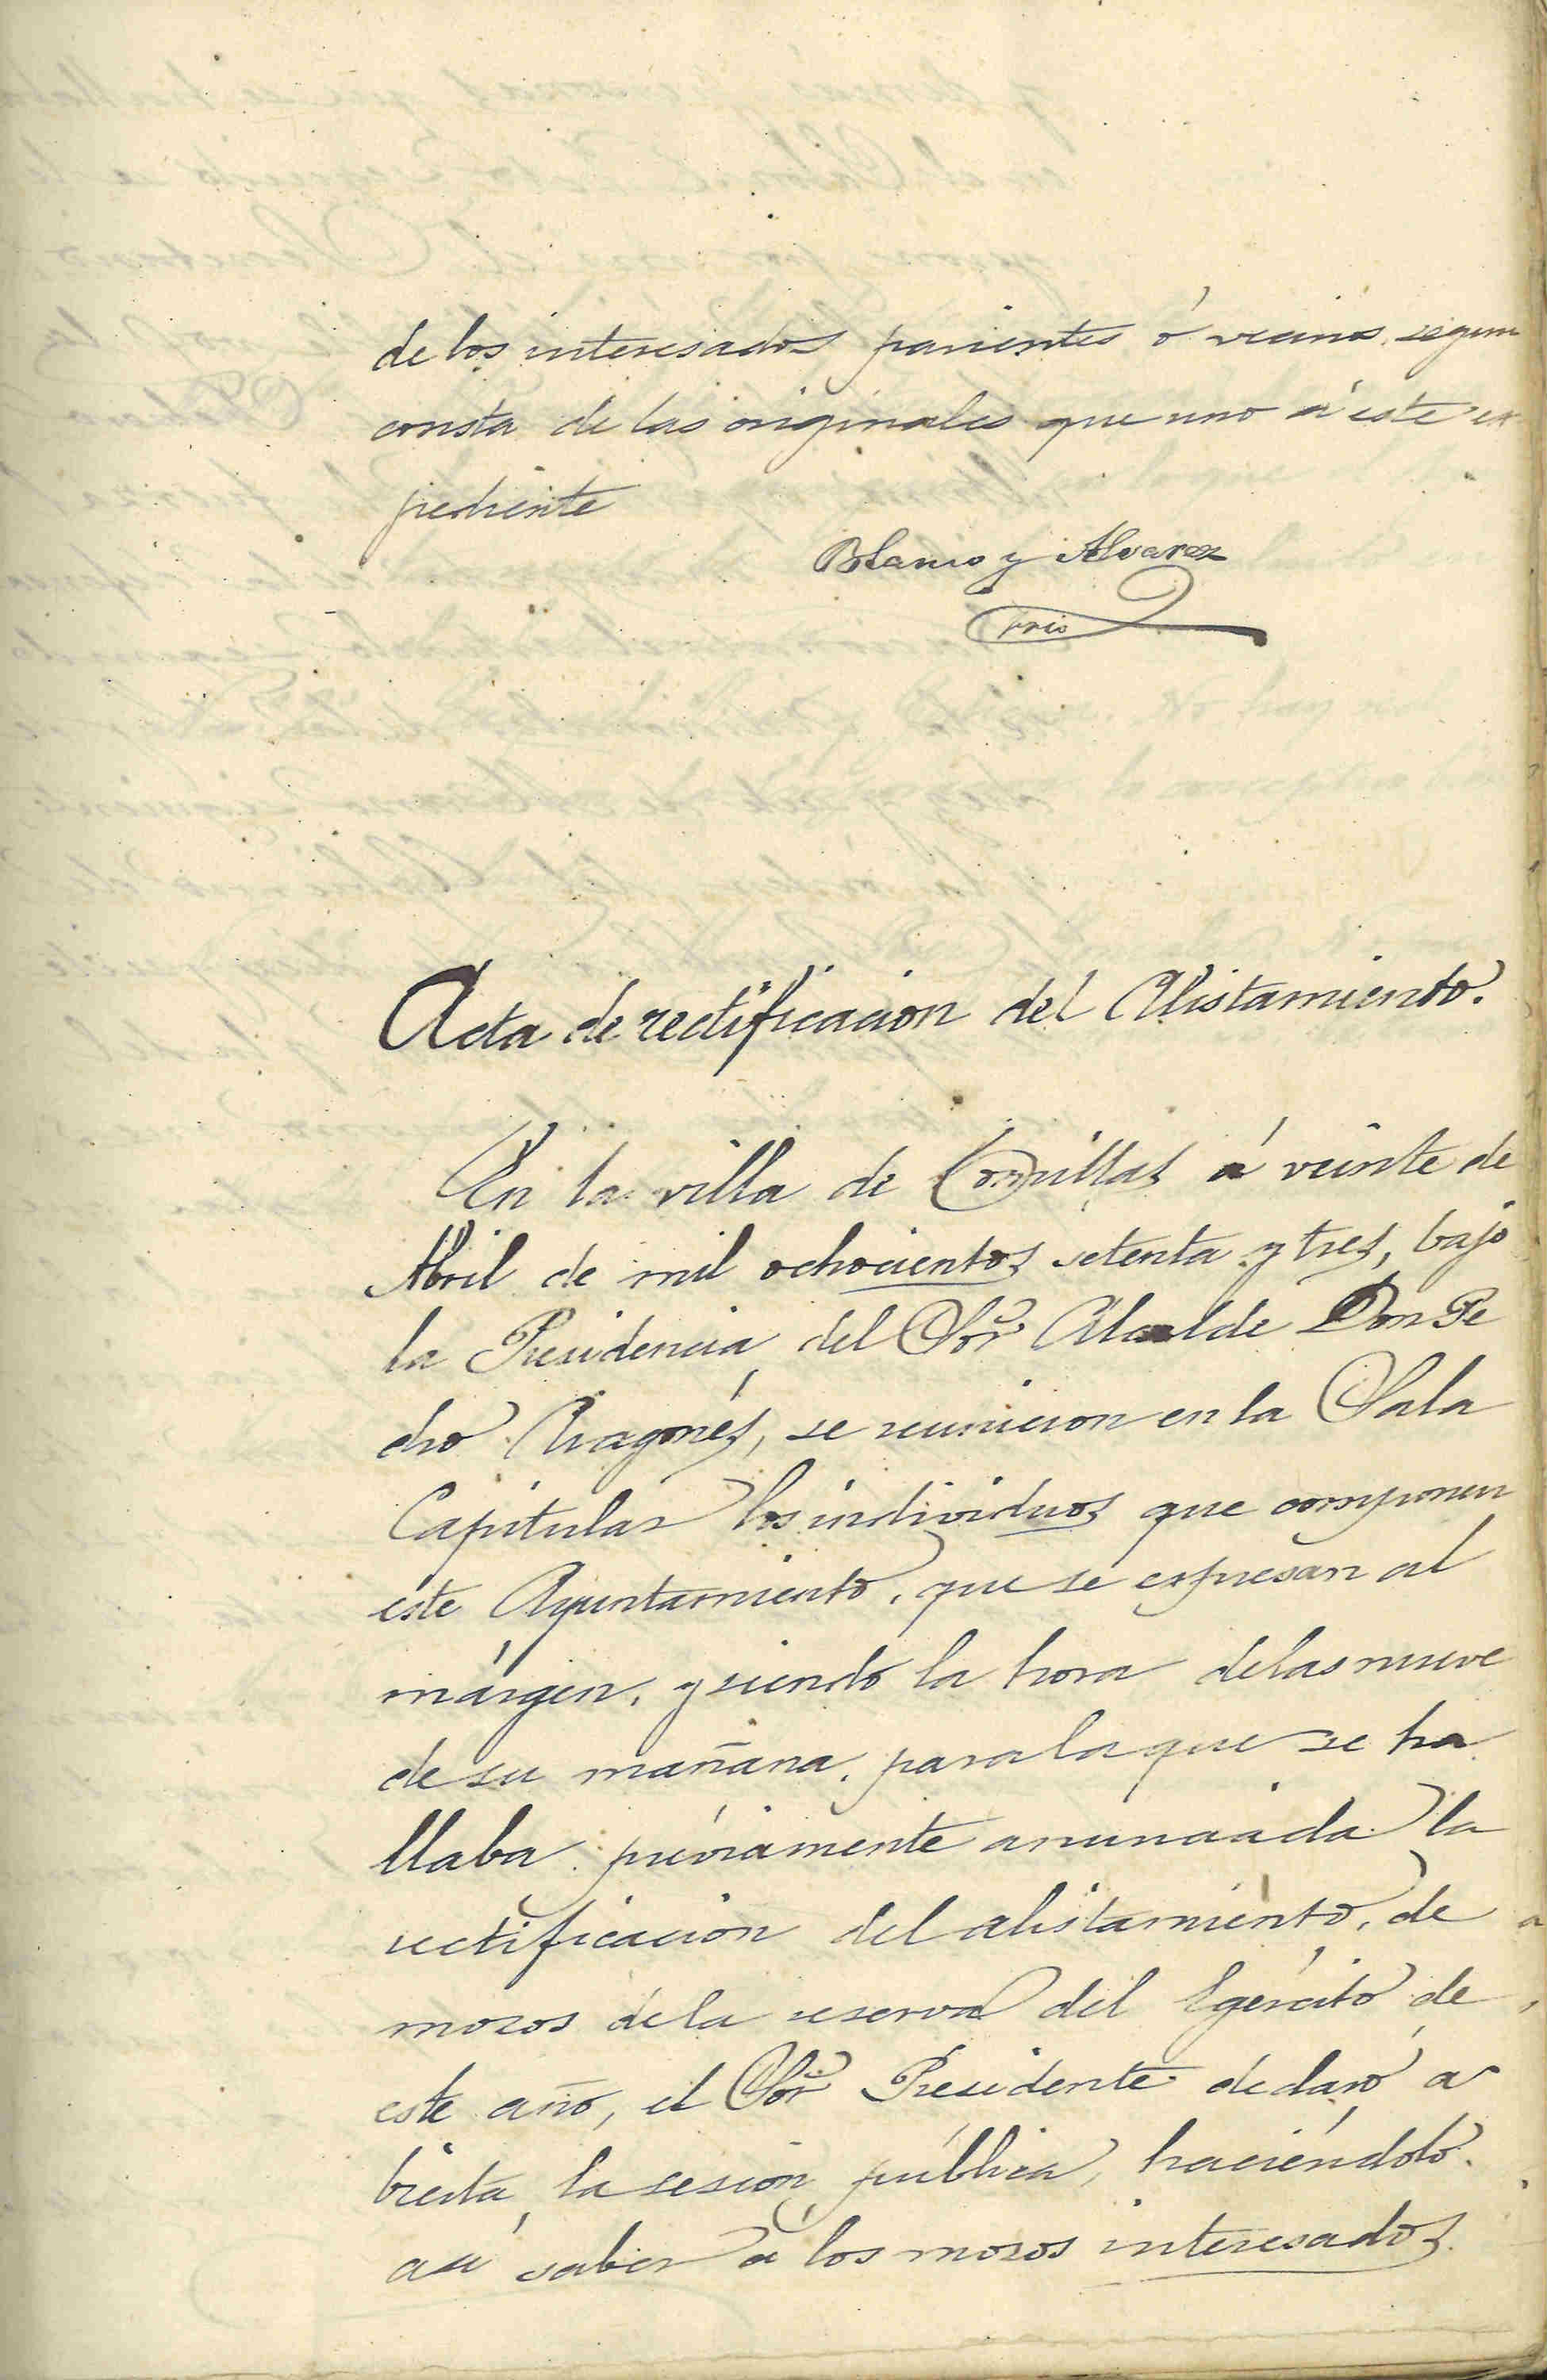 de los interesados parientes ó vecinos segun
consta de las originales que uno á este ex
pediente
Blanco y Alvarez
Srio
Acta de rectificacion del Alistamiento.
En la villa de Comillas á veinte de
Abril de mil ochocientos setenta y tres, bajo
la Presidencia del Sor Alcalde Don Pe
dro Aragonés, se reunieron en la Sala
Capitular los individuos que componen
este Ayuntamiento, que se espresan al
márgen, y siendo la hora de las nueve
de su mañana, para la que se ha
llaba préviamente anunciada la
rectificacion del alistamiento, de
mozos de la reserva del Egército de
este año, el Sor Presidente declaró a
bierta la sesion pública, haciéndolo
asi saber á los mozos interesados.